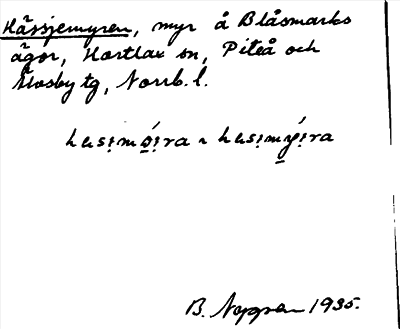 Hässjemyren, myr å Blåsmarks
ägor, Hortlax sn, Piteå och
Älvsby tg, Norrb. l.
hɛsịmǫ́ịra ~ hɛsịmý̨ịra
B. Nygren 1935.